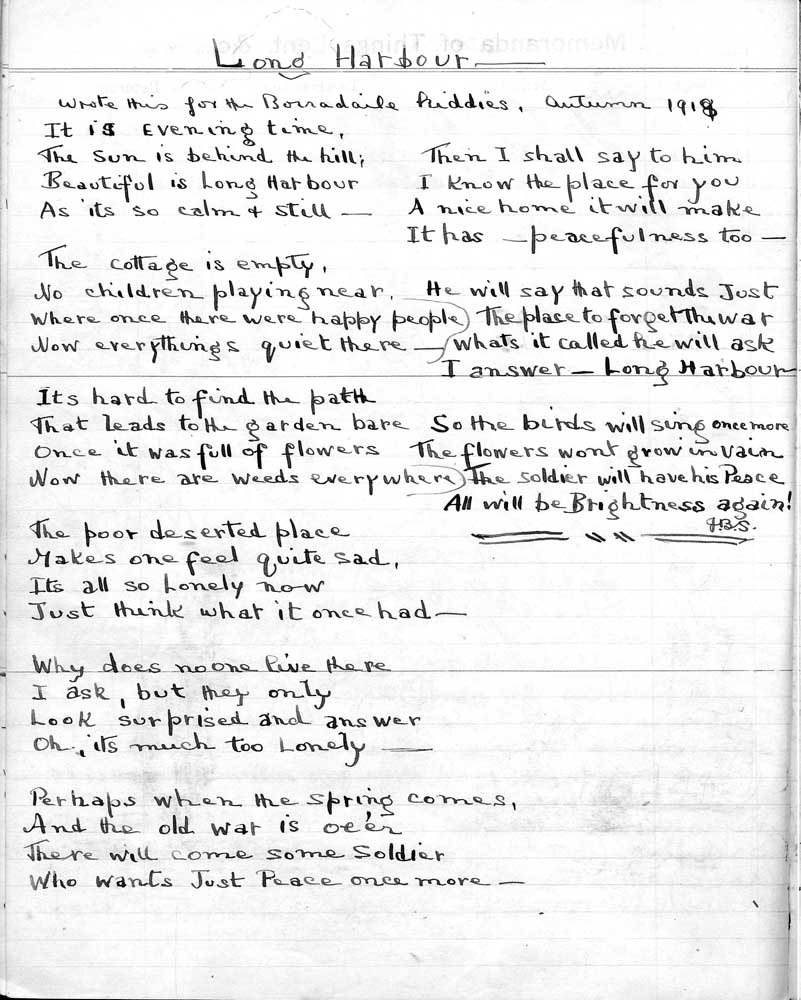 Long Harbour —
Wrote this for the Borradaile Kiddies, Autumn 1918
It is Evening time,
The Sun is behind the hill;
Beautiful is Long Harbour
As its so calm & still —
The cottage is empty,
No children playing near,
Where once there were happy people
Now everythings quiet there —
Its hard to find the path
That leads to the garden bare
Once it was full of flowers
Now there are weeds everywhere
The poor deserted place
Makes one feel quite sad,
Its all so Lonely now
Just think what it once had —
Why does no one live there
I ask, but they only
Look surprised and answer
Oh, its much too Lonely —
Perhaps when the spring comes,
And the old war is oe'er
There will come some Soldier
Who wants Just Peace once more —
Then I shall say to him
I Know the place for you
A nice home it will make
It has — peacefulness too —
He will say that sounds Just
The place to forget the war
Whats it called he will ask
I answer — Long Harbour —
So the birds will sing once more
The flowers wont grow in vain
The soldier will have his Peace
All will be Brightness again!
H.B.S.